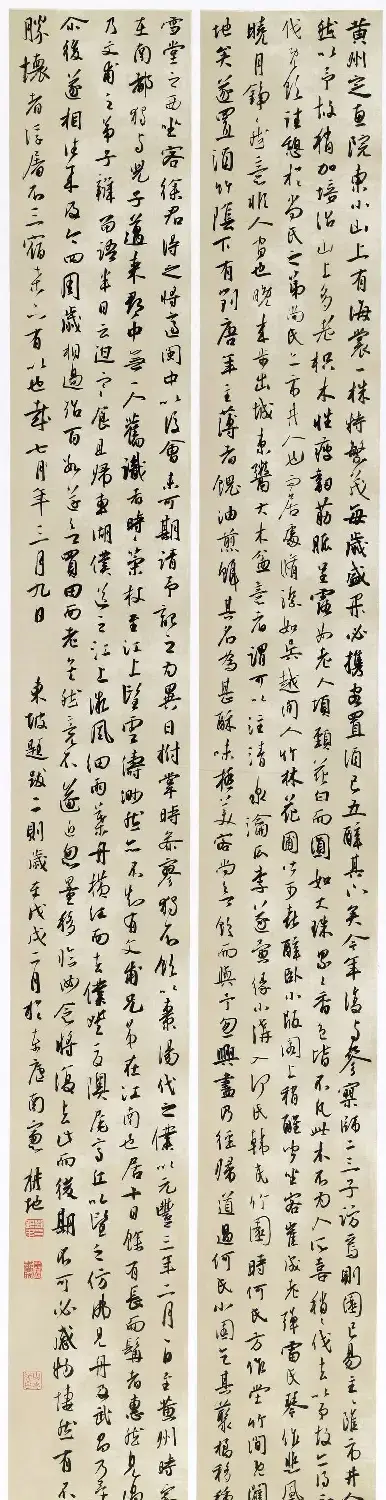 黄州定惠院東小山上有海棠一株特繁茂每歲盛開必攜客置酒已五醉其下矣今年復與參寥師二三子訪焉則園已易主雖市井人
然以予故稍加培治山上多老枳木性瘦韌筋脈呈露如老人項頸花白而圓如大珠累累香色皆不凡此木不為人所喜稍稍伐去以予故亦得不
伐既飲往憩於尚氏之第尚氏亦市井人也而居處修潔如吳越間人竹林花圃皆可喜醉臥小板閣上稍醒聞坐客崔成老彈雷氏琴作悲風
曉月錚錚然意非人間也晚來步出城東鬻大木盆意者謂可以注清泉瀹瓜李遂夤緣小溝入何氏韓氏竹園時何氏方作堂竹間既闢
地矣遂置酒竹陰下有劉唐年主薄者餽油煎餌其名為甚酥味極美客尚欲飲而予忽興盡乃徑歸道過何氏小圃乞其藂橘移種
雪堂之西坐客徐君得之將適閩中以後會未可期請予記之為異日拊掌時參寥獨不飲以棗湯代之僕以元豐三年二月一日至黄州時家
在南都獨與兒子邁來郡中無一人舊識者時時策杖至江上望雲濤渺然亦不知有文甫兄弟在江南也居十日餘有長而髯者惠然見過
乃文甫之弟子辯留語半日云迫寒食且歸東湖僕送之江上微風細雨葉舟橫江而去僕登夏隩尾高丘以望之仿佛見舟及武昌乃還
尒後遂相往來及今四周歲相過殆百數遂欲買田而老焉然竟不遂近忽量移臨汝念將復去此而後期不可必感物悽然有不
勝懷者浮屠不三宿桑下有以也哉七月年三月九日 東坡題跋二則歲在戊戌二月於東唐南窗